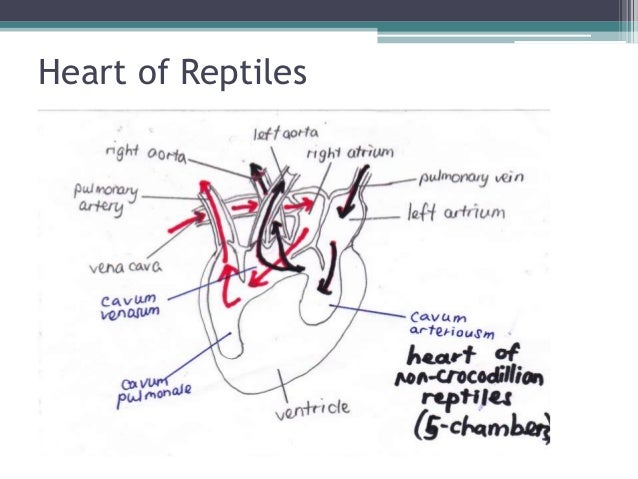 Heart of Reptiles
left aorta
right aorta
right atrium
pulmonary
artery
pulmonary vein
left artrium
vena cava
cavum
venasum
cavum
arteriousm
cavum
pulmonale
ventricle
heart of
non-crocodillian
reptiles
(5-chambers)